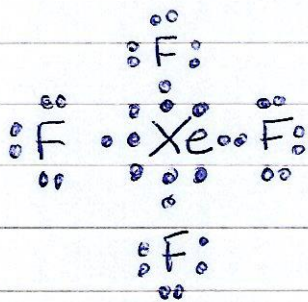 F
F Xe F
F